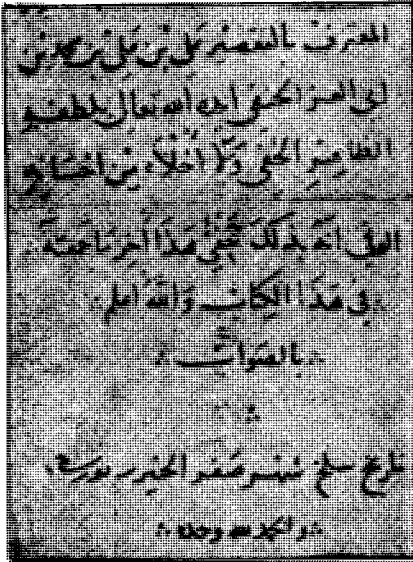 المعترف بالتقصير علي بن علي بن محمد بن
ابي العز الحنفي ايده الله تعالى بلطفه
الظاهر الخفي ولا اخلاه من احسانه
انه بذلك هذا اخر ما جمعته
في هذا الكتاب والله اعلم
بالصواب
تاريخ سلخ شهر صفر الخير
والحمد لله وحده